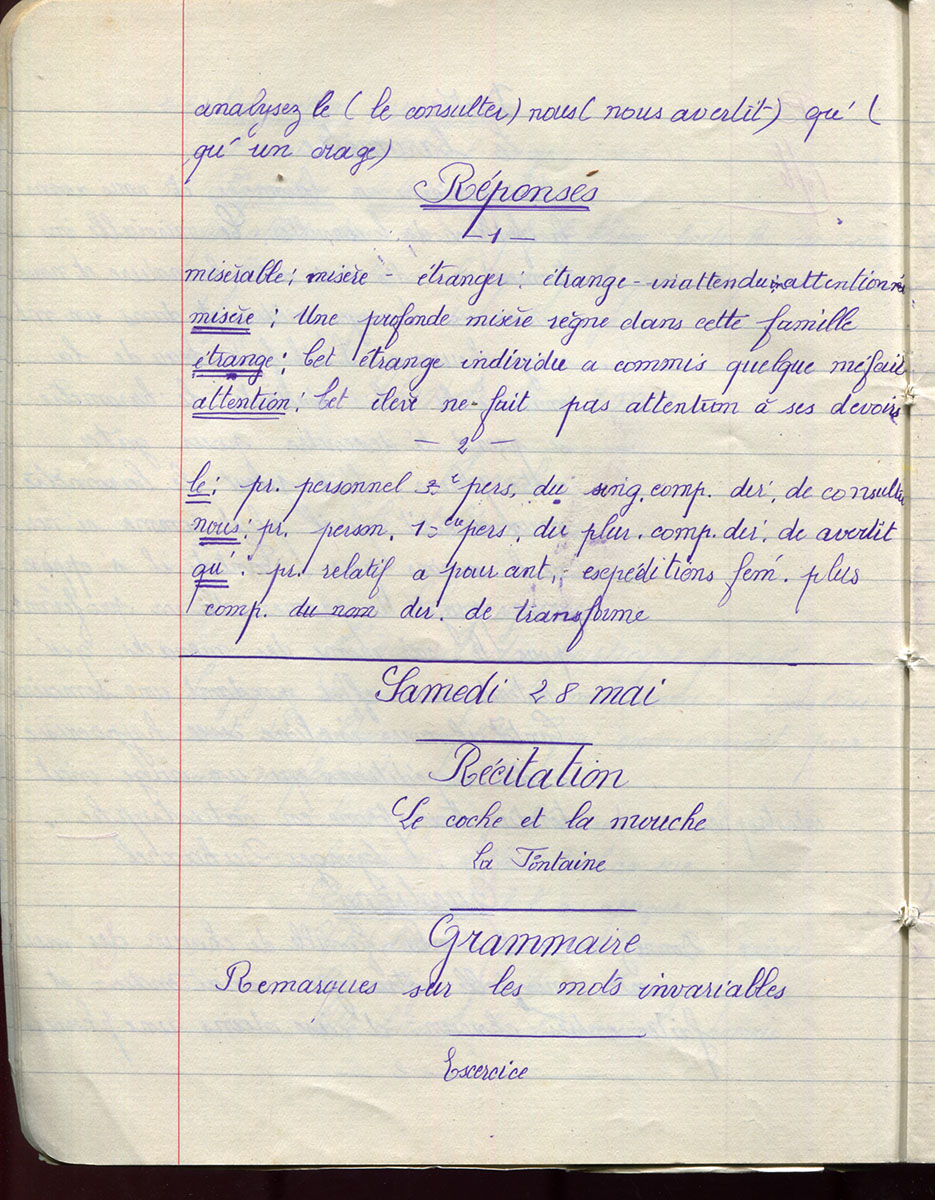 analysez le ( le consulter) nous ( nous avertit) qu' (
qu' un orage)
Réponses
— 1 —
misérable : misère - étranger : étrange - inattendu : attention
misère : Une profonde misère règne dans cette famille
étrange : Cet étrange individu a commis quelque méfait
attention : Cet élève ne fait pas attention à ses devoirs
— 2 —
le : pr. personnel 3e pers. du sing. comp. dir. de consulter
nous : pr. person. 1ère pers. du plur. comp. dir. de avertit
qu' : pr. relatif a pour ant. expéditions fém. plus
comp. du nom dir. de transforme
Samedi 28 mai
Récitation
Le coche et la mouche
La Fontaine
Grammaire
Remarques sur les mots invariables
Exercice